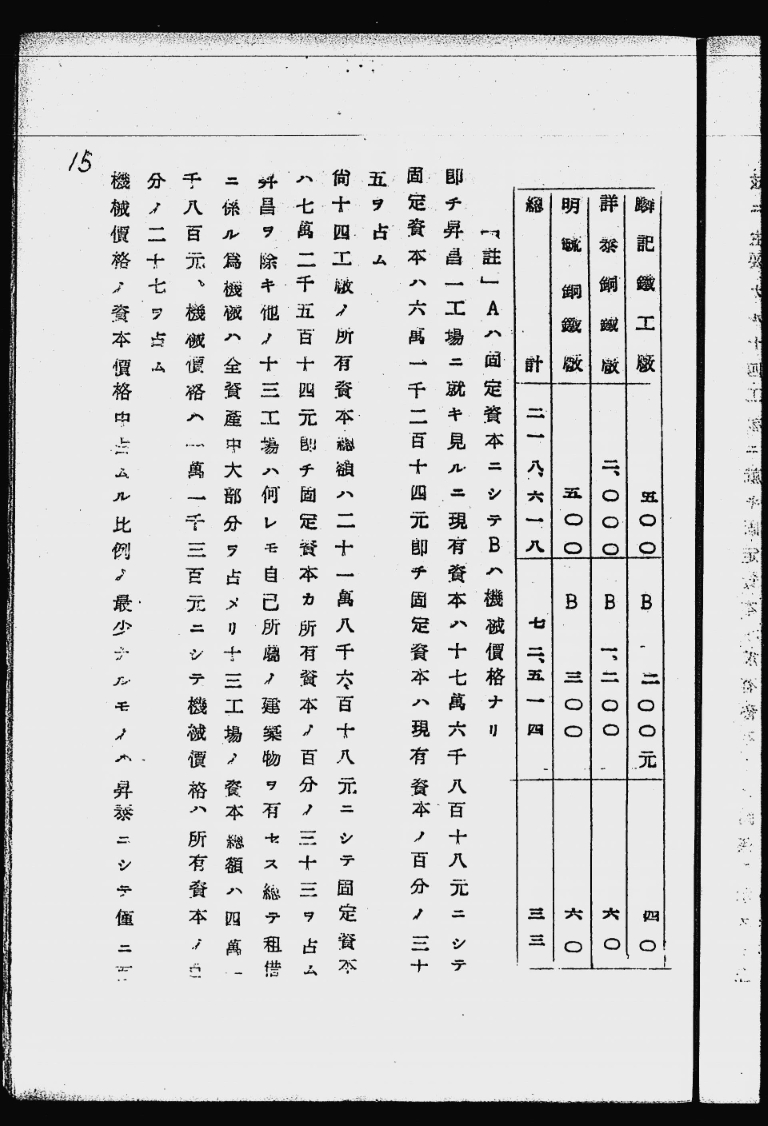 記鐵工廠 五〇〇 B 二〇〇元 四〇
詳泰銅鐵廠 二、〇〇〇 B 一、二〇〇 六〇
明銅鐵廠 五〇〇 B 三〇〇 六〇
總計 二一八、六一八 七二、五一四 三三
「註」Aハ固定資本ニシテBハ機械價格ナリ
卽チ昇昌一工場ニ就キ見ルニ現有資本ハ十七萬六千八百十八元ニシテ
固定資本ハ六萬一千二百十四元卽チ固定資本ハ現有資本ノ百分ノ三十
五ヲ占ム
尙十四工廠ノ所有資本總額ハ二十一萬八千六百十八元ニシテ固定資本
ハ七萬二千五百十四元卽チ固定資本カ所有資本ノ百分ノ三十三ヲ占ム
昇昌ヲ除キ他ノ十三工場ハ何レモ自己所屬ノ建築物ヲ有セス總テ租借
ニ係ル爲機械ハ全資產中大部分ヲ占メリ十三工場ノ資本總額ハ四萬一
千八百元、機械價格ハ一萬一千三百元ニシテ機械價格ハ所有資本ノ百
分ノ二十七ヲ占ム
機械價格ノ資本價格中占ムル比例ノ最少ナルモノハ昇泰ニシテ僅ニ百
15